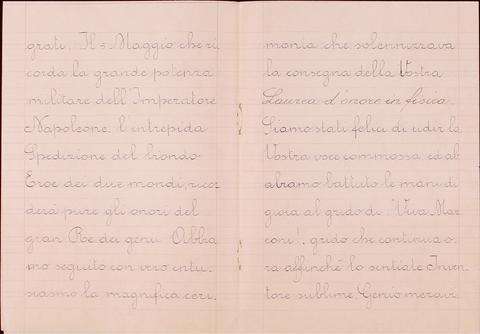 grati. Il 5 Maggio che ri
corda la grande potenza
militare dell'Imperatore
Napoleone, l'intrepida
Spedizione del biondo
Eroe dei due mondi, ricor
derà pure gli onori del
gran Re dei geni. Abbia
mo seguito con vero entu-
siasmo la magnifica ceri-
monia che solennizzava
la consegna della Vostra
Laurea d'onore in fisica.
Siamo stati felici di udir la
Vostra voce commossa, ed ab
abiamo battuto le mani di
gioia al grido di: Viva Mar
coni!, grido che continua o-
ra affinché lo sentiate Inven-
tore sublime, Genio meravi-